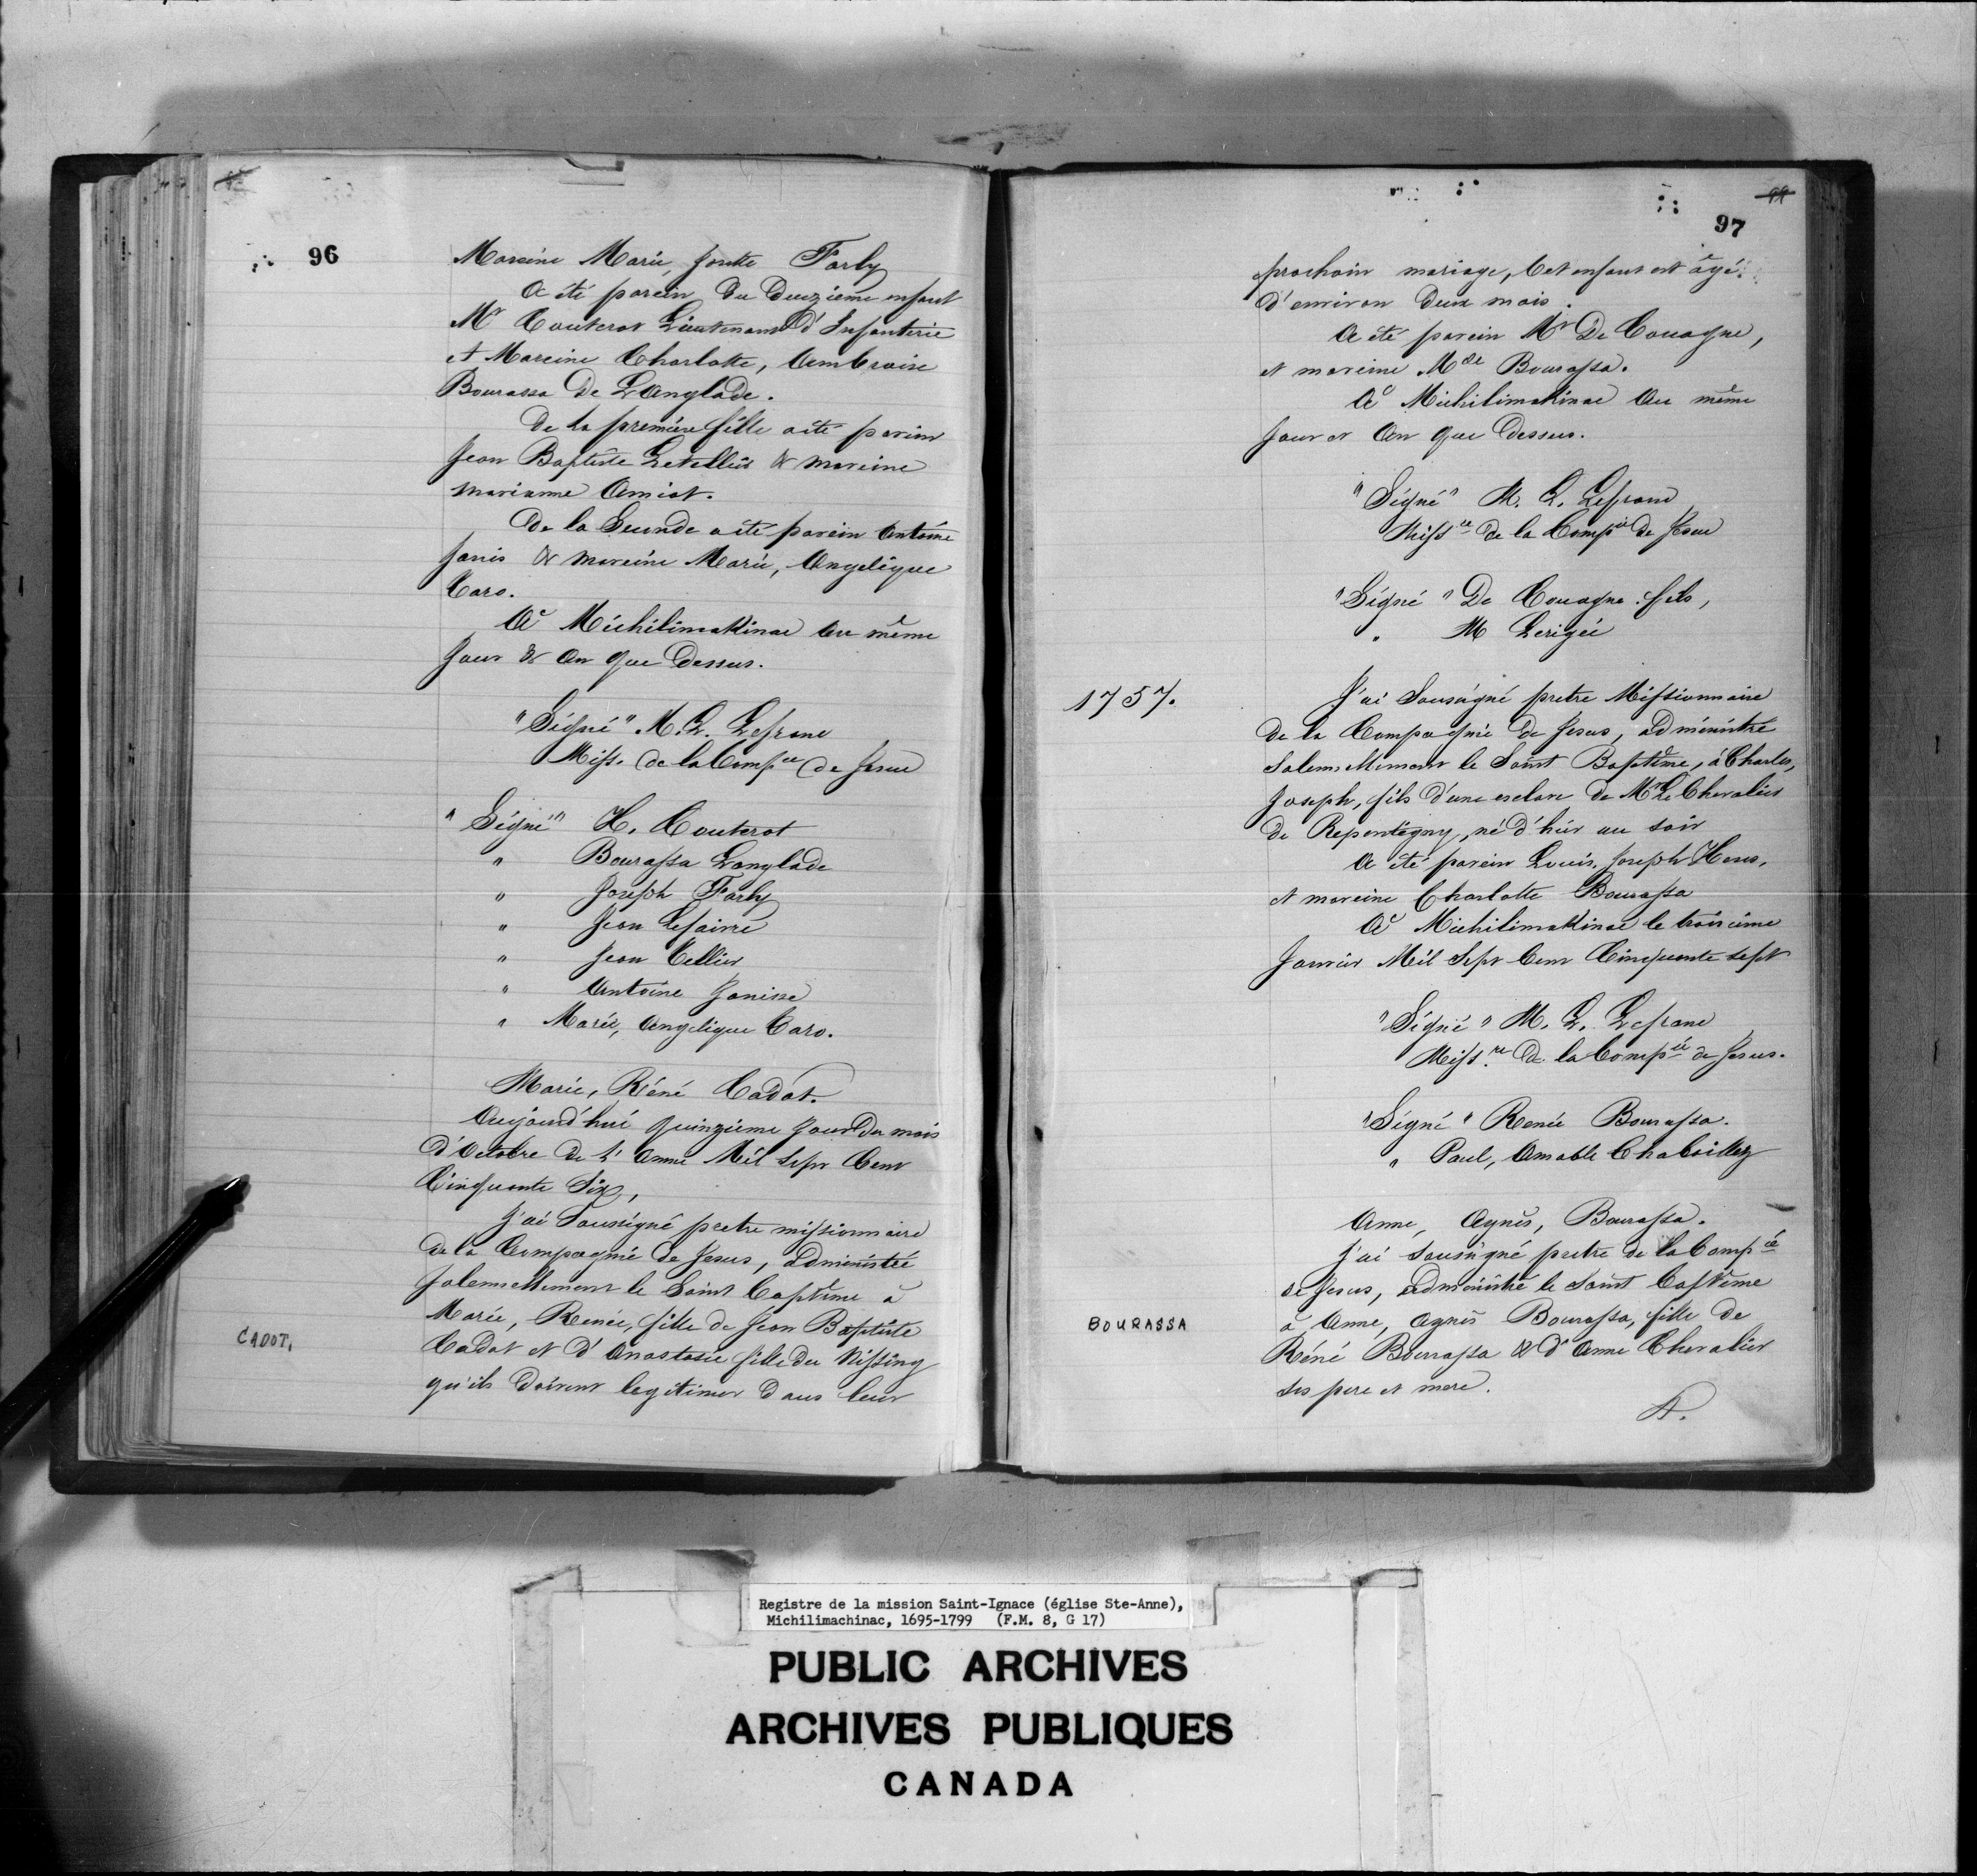 96
Mareine Marie, Josette Farly
A été parein du deuzième enfant
Mr Couterot Lieutenant d'Infanterie
et Mareine Charlotte, Ambroise
Bourassa De Langlade.
De la première fille a été parein
Jean Baptiste Letellier & mareine
Marianne Amiot.
De la Seconde a été parein Antoine
Janis & mareine Marie, Angelique
Caro.
A Michilimakinac au même
Jour & An que Dessus.
"Signé" M. L. Lefranc
Miss. de la Compie de Jesus
"Signé" H. Couterot
" Bourassa Langlade
" Joseph Farly
" Jean Lefaivre
" Jean Cellier
" Antoine Janisse
" Marie, Angelique Caro.
Marie, Réné Cadot.
Aujourd'hui quinzieme Jour du mois
d'Octobre de l'Anné Mil Sept Cent
Cinquante Six,
J'ai Soussigné pretre missionnaire
de la Compagnie de Jesus, administré
solemnellement le Saint Baptême à
CADOT.
Marie, Renée, fille de Jean Baptiste
Cadot et d'Anastasie fille du Nissing
qu'ils doivent legitimer dans leur
99
97
prochain mariage, Cet enfant est âgé
d'environ deux mois.
A été parein Mr De Couagne,
et mareine Mde Bourassa.
A Michilimakinac Au même
Jour et An que Dessus.
"Signé" M. L. Lefranc
Missre de la Compie de Jesus
"Signé" De Couagne fils,
" M Lerigée
1757.
J'ai Soussigné pretre Missionnaire
de la Compagnie de Jesus, administré
Solemnellement le Saint Baptême, à Charles,
Joseph, fils d'une esclave de Mr Le Chevalier
de Repentigny, né d'hier au soir
A été parein Louis, Joseph
et mareine Charlotte Bourassa
A Michilimakinac le troisième
Janvier Mil Sept Cent Cinquante sept
"Signé" M. L. Lefranc
Missre de la Compie de Jesus.
"Signé" Renée Bourassa.
" Paul, Amable Chaboillez
Anne, Agnès, Bourassa.
J'ai soussigné pretre de la Compie
de Jesus, administré le Saint Baptême
BOURASSA
à Anne, Agnès Bourassa, fille de
Réné Bourassa & d'Anne Chevalier
ses pere et mere.
A.
Registre de la mission Saint-Ignace (église Ste-Anne),
Michilimachinac, 1695-1799 (F.M. 8, G 17)
PUBLIC ARCHIVES
ARCHIVES PUBLIQUES
CANADA